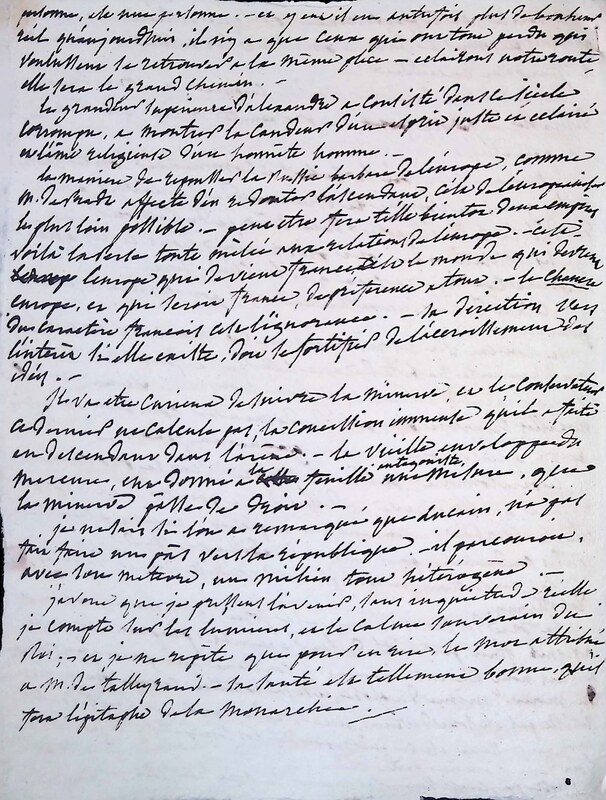 personne, et ne nuire personne. – et y eut-il eu autrefois plus de bonheur
qu'aujourdhui, il n'y a que ceux qui ont tout perdu qui
voulussent se retrouver a la même place – eclairons notre route
elle sera le grand chemin. –
la grandeur superieure d'alexandre a consisté dans ce siècle
corrompu, a montrer la candeur d'un esprit juste et eclairé
et l'âme religieuse d'un honnête homme. –
la manière de repousser la Russie barbare de l'europe, comme
M. de Pradt affecte d'en redouter l'ascendant, est de l'européaniser
le plus loin possible. – peut etre sera-t-elle bientot deux empires
voilà la seule toute oubliée aux relations de l'europe. – est-ce
l'europe qui devient france est-ce le monde qui devient
europe, et qui seroit france, de préférence a tout. – le
du caractère francois est l'ignorance. – sa direction vers
l'intérêt si elle existe, doit se fortifier de l'accroissement des
idées. –
Il va etre curieux de suivre la minerve, et le Conservateur
ce dernier ne calcule pas, la concession immense qu'il a faite
en descendant dans l'arène. – la vieille enveloppe du
mercure, en donnoit a la feuille antagoniste, une mesure, que
la minerve passe de droit. –
je ne sais si l'on a remarqué que ducain, n'a pas
fait faire un pas vers la république. – il parcouroit,
avec son meteore, un milieu tout hétérogène. –
j'avoue que je pressens l'avenir, sans inquietude réelle
je compte sur les lumieres, et le calme souverain du
Roi; – et je ne repète que pour en rire, le mot attribué
a M. de talleyrand. – sa santé est tellement bonne, qu'il
fera l'épitaphe de la Monarchie. –